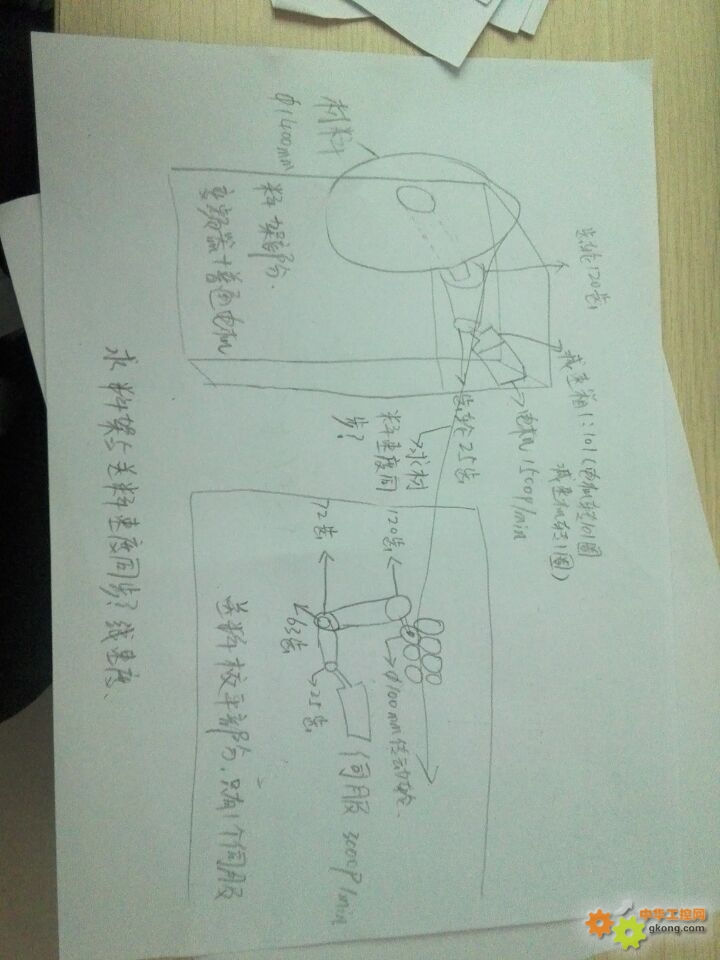 齿轮120齿
减速箱1:101(电机转101圈
减速机转1圈)
电机1500P/min
齿轮25齿
材料
φ1400mm
料架部分.
变频器+普通电机
求材
料速度同
步?
120齿
φ100mm传动轮.
72齿
63齿
25齿
伺服 3000P/min
送料校平部分,只有1个伺服
求料架与送料速度同步?线速度.
中华工控网
gkong.com